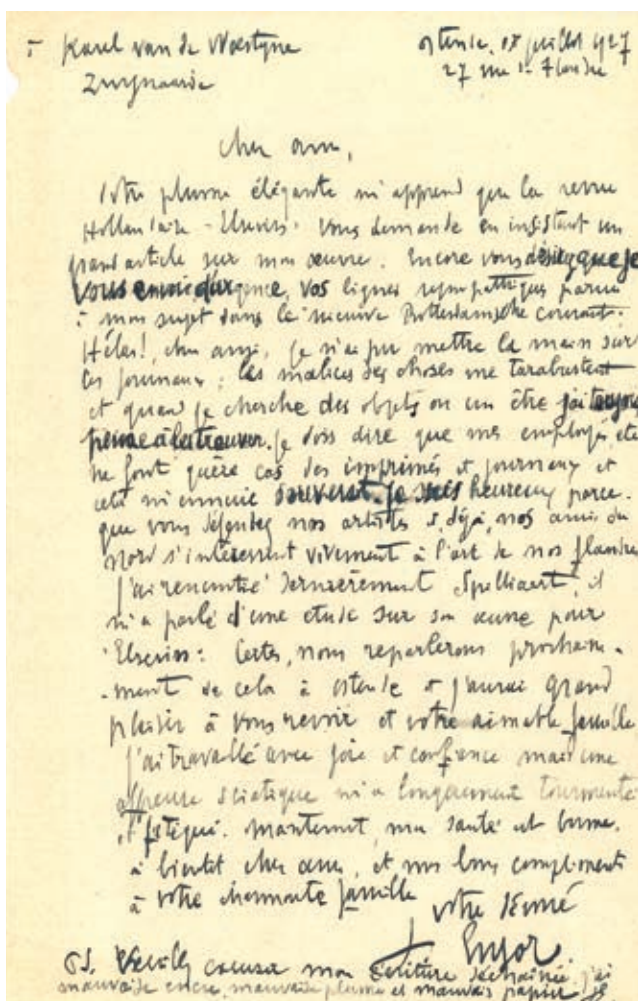 à Karel van de Woestyne
Zwynaarde
Ostende, 18 juillet 1927
27 rue de Flandre
Cher ami,
Votre plume élégante m'apprend que la revue
Hollandaise - Elsevier - vous demande en insistant un
grand article sur mon œuvre. Encore vous désirez que je
vous envoie d'urgence, vos lignes sympathiques parues
à mon sujet dans le nieuwe Rotterdamsche courant.
Hélas!, cher ami, je n'ai pu mettre la main sur
ces journaux; les malices des choses me tarabustent
et quand je cherche des objets ou un être j'ai toujours
peine à les trouver. je dois dire que mes employés, etc
ne font guère cas des imprimés et journaux et
cela m'ennuie souvent. je suis heureux parce.
que vous défendez nos artistes déjà, nos amis du
nord s'intéressent vivement à l'art de nos flandres
j'ai rencontré dernièrement Spilliaert, il
m'a parlé d'une etude sur son œuvre pour
Elsevier: Certes, nous reparlerons prochaine-
-ment de cela à ostende et j'aurai grand
plaisir à vous revoir et votre aimable famille
j'ai travaillé avec joie et confiance mais une
affreuse sciatique m'a longuement tourmenté
et fatigué. maintenant, ma santé est bonne.
à bientot cher ami, et mes bons compliments
à votre charmante famille
votre dévoué
J Ensor
P.S. Veuillez excuser mon écriture j'ai
mauvaise encre, mauvaise plume et mauvais papier